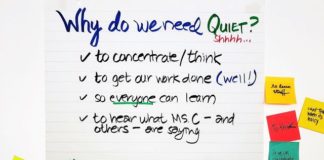 Why do we need QUIET?
shhhh...
✓ to concentrate/think
✓ to get our work done (well!)
✓ so everyone can learn
✓ to hear what MS. C – and
others – are saying